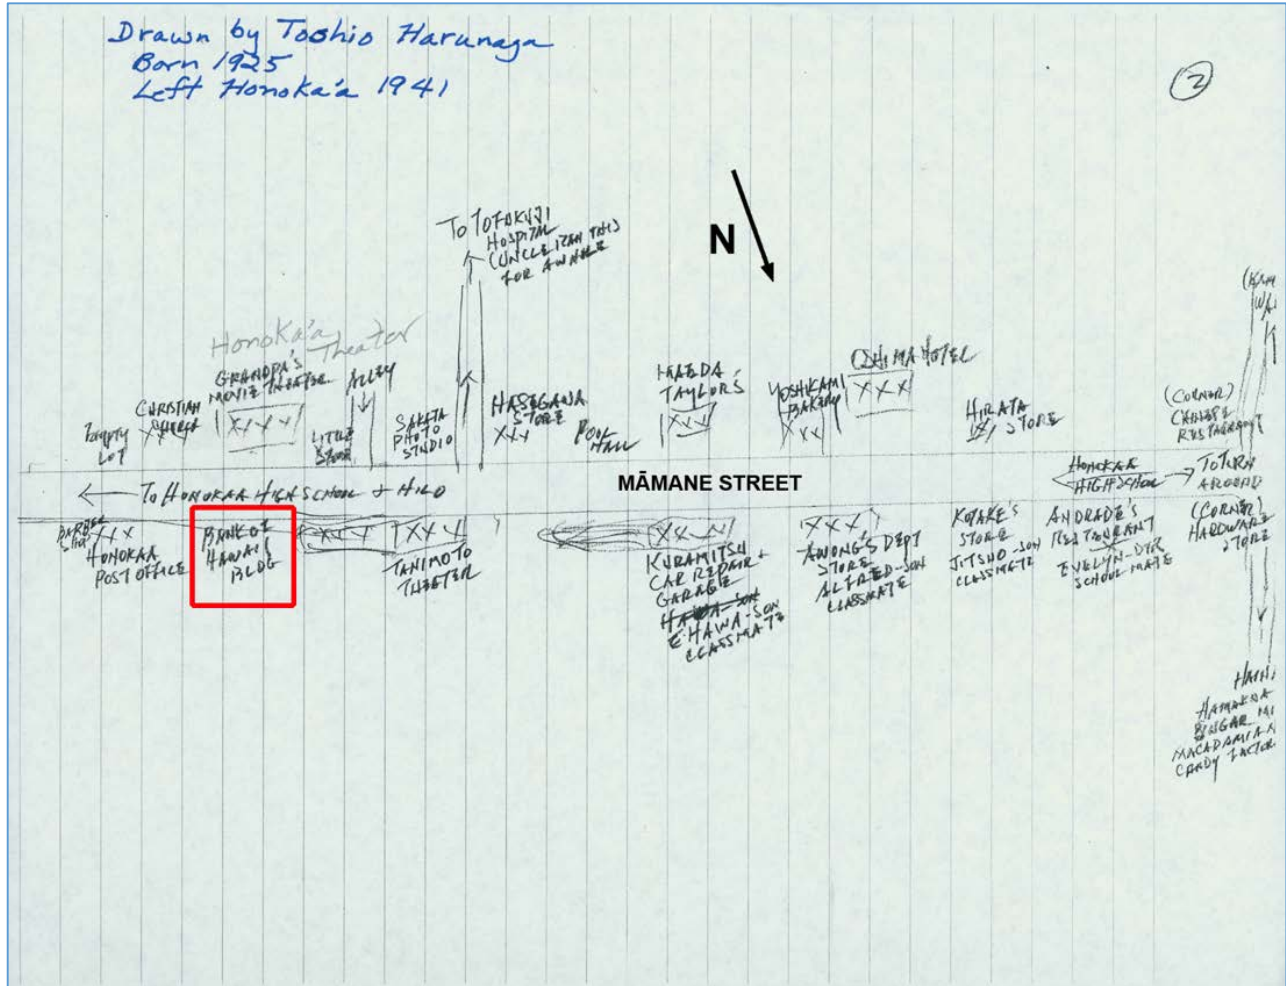 Drawn by Toshio Harunaga
Born 1925
Left Honoka'a 1941
2
N
TO
HOSPITAL
(UNCLE RAN THIS
FOR AWHILE
Honoka'a
Theater
GRANDPA'S
MOVIE THEATER
ALLEY
CHRISTIAN
CHURCH
XXX
EMPTY
LOT
XXX
LITTLE
STORE
SAKATA
PHOTO
STUDIO
HASEGAWA
STORE
XXX
POOL
HALL
MAEDA
TAYLOR'S
XXX
YOSHIKAMI
BAKERY
XXX
OSHIMA HOTEL
XXX
HIRATA
STORE
(CORNER)
CHINESE
RESTAURANT
MĀMANE STREET
TO HONOKAA HIGH SCHOOL & HILO
HONOKAA
HIGH SCHOOL
TO TURN
AROUND
BARBER
SHOP
XXX
HONOKAA
POST OFFICE
BANK OF
HAWAII
BLDG
XXX
XXX
TANIMOTO
THEETER
XXX
KURAMITSU
CAR REPAIR &
GARAGE
HAWA-SON
CLASSMATE
XXX
AWONG'S DEPT
STORE
ALFRED-SON
CLASSMATE
KOTAKE'S
STORE
JITSHO-SON
CLASSMATE
ANDRADE'S
RESTAURANT
EVELYN-DTR
SCHOOL MATE
(CORNER)
HARDWARE
STORE
HAMAKUA
SUGAR MI
MACADAMIA N
CANDY FACTOR